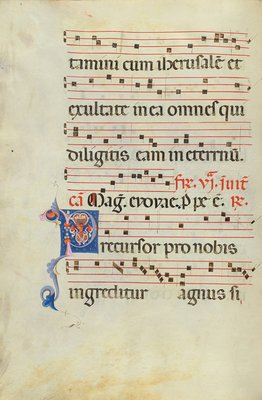 tamini cum iherusalē et
exultate in ea omnes qui
diligitis eam in eternū.
fīr. vj. iuit
cā Mag̃. evovae. P̱ pe c̄. R̄.
Precursor pro nobis
ingreditur agnus si